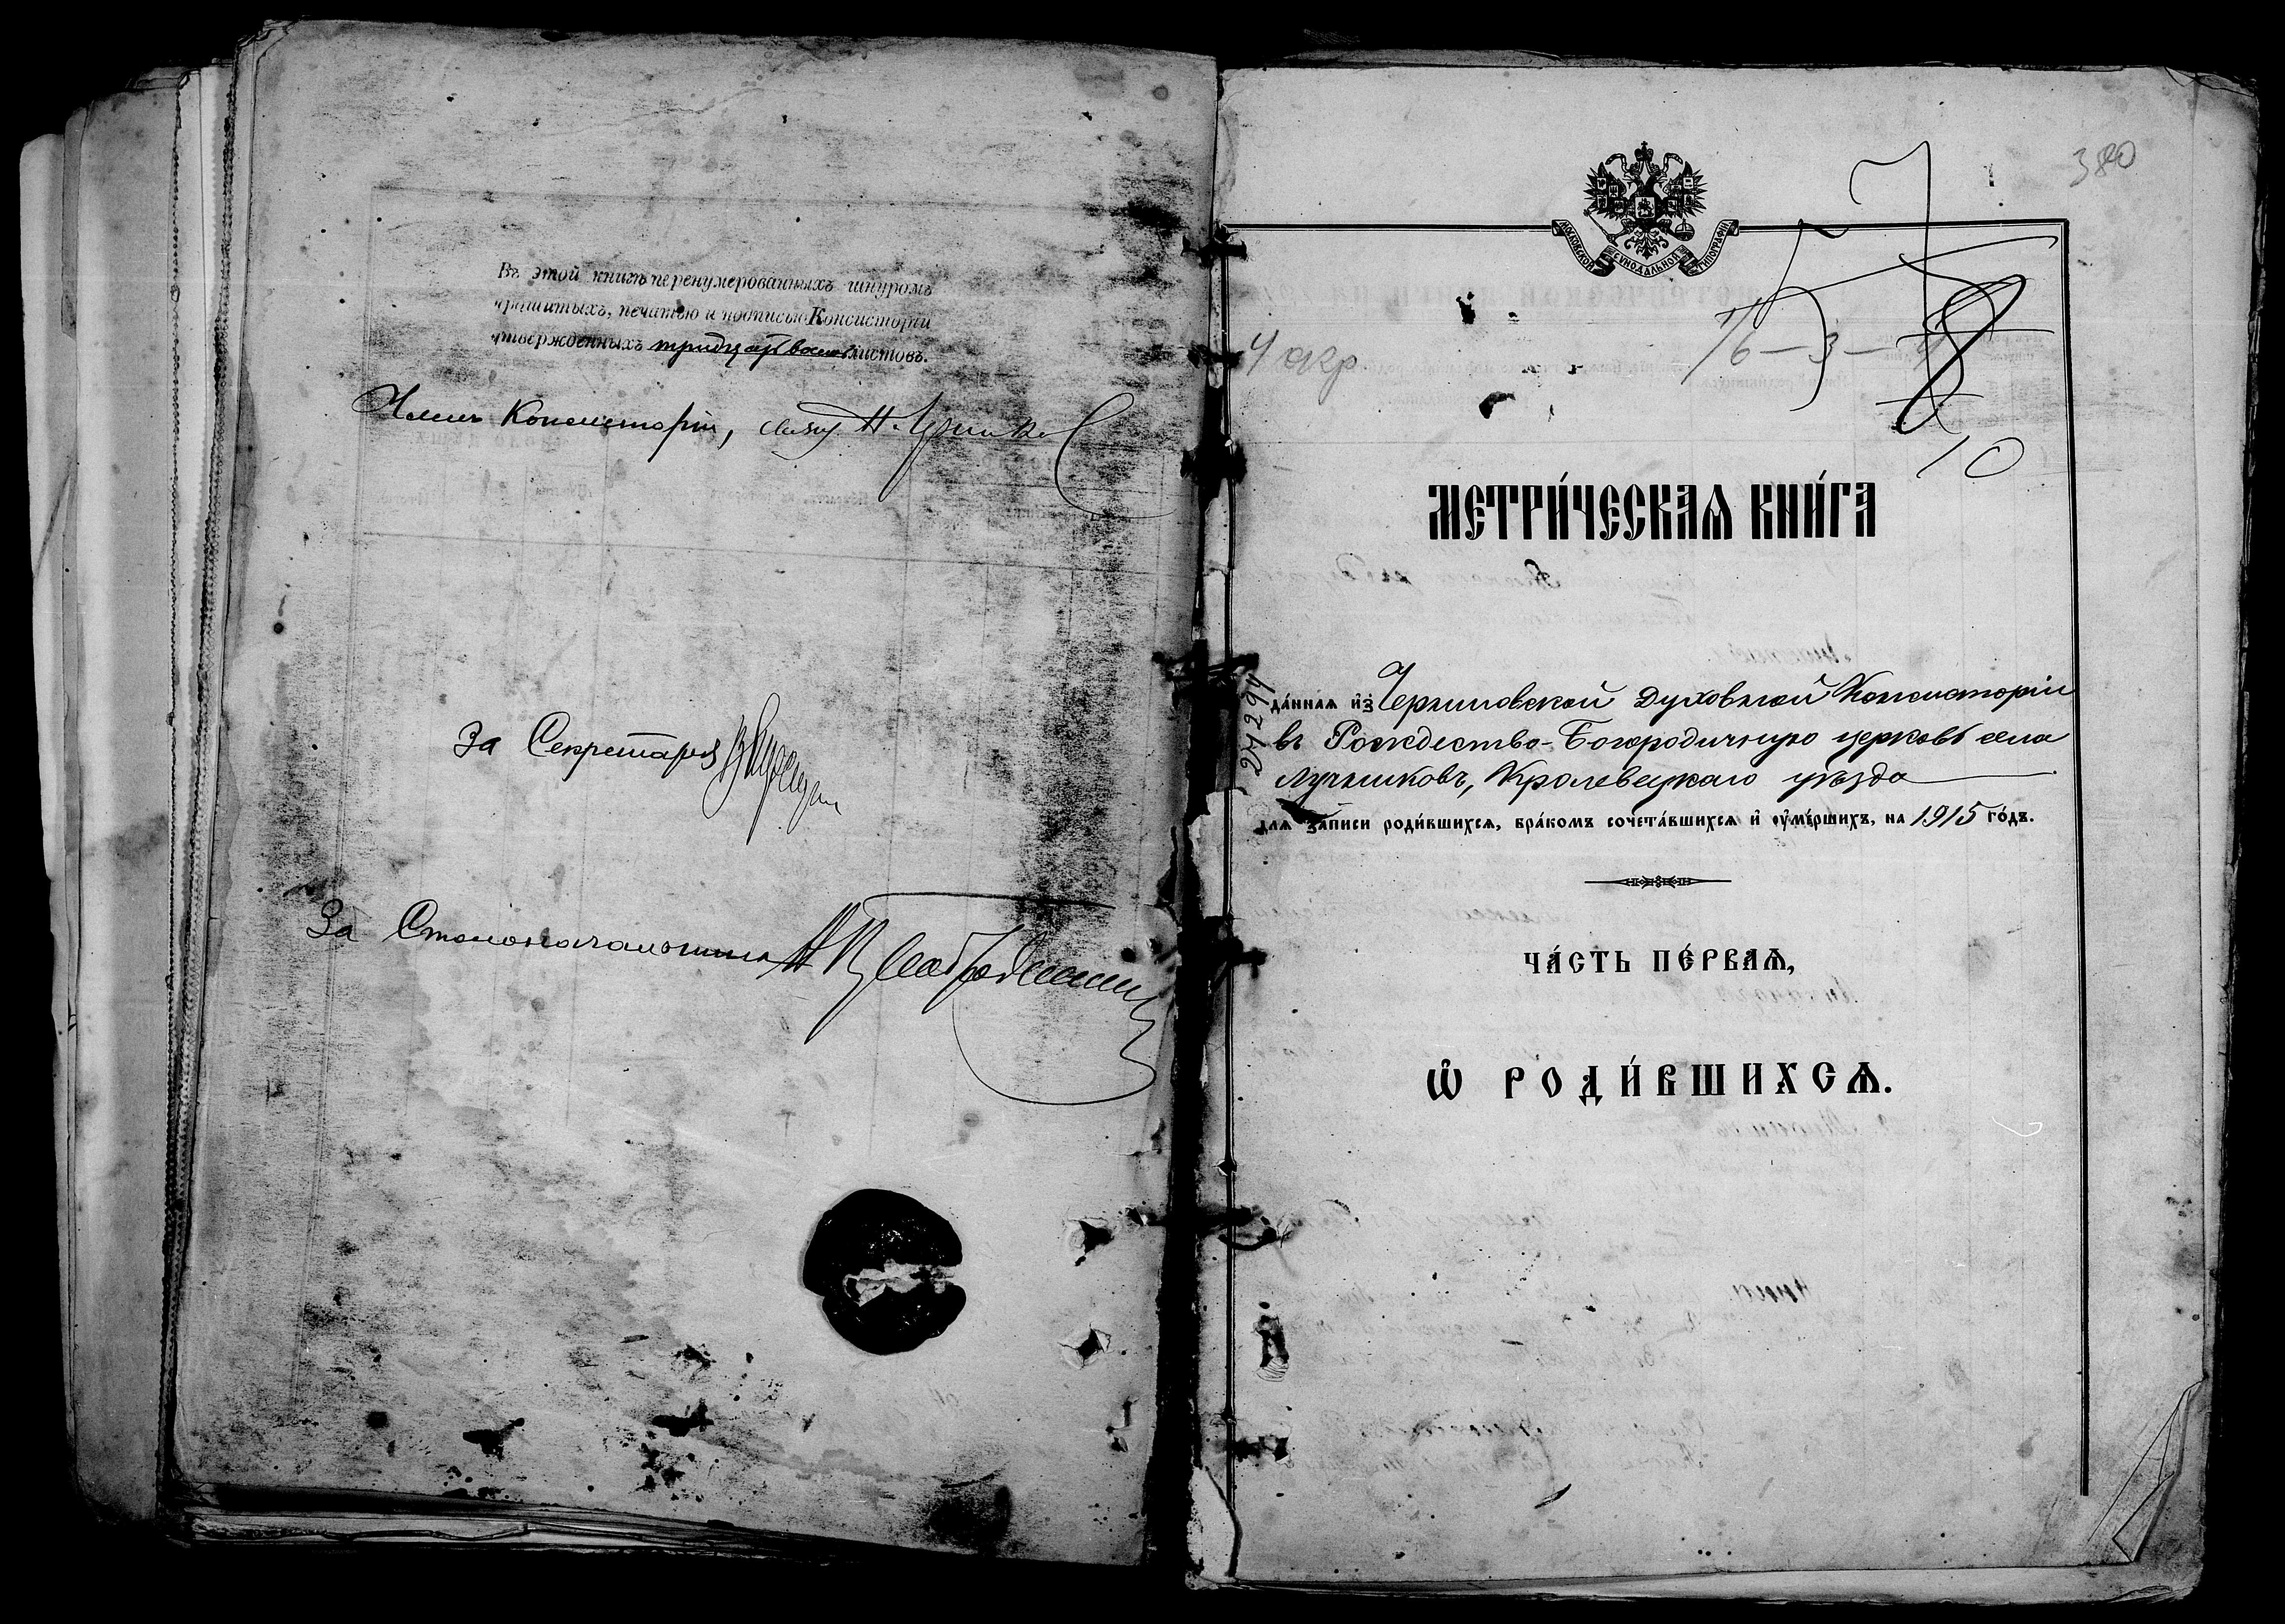 Въ этой книгѣ перенумерованныхъ шнуромъ
прошитыхъ, печатью и подписью Консисторіи
утвержденныхъ тридцать восемь листовъ.
Членъ Консисторіи,
За Секретаря
За Столоначальника
380
МОСКОВСКОЙ СУНОДАЛЬНОЙ ТИПОГРАФІИ
10
МЕТРИ́ЧЕСКАѦ КНИ́ГА
да́ннаѧ из Черниговской Духовной Консисторіи
въ Рождество-Богородичную церковь села
Лучниковъ, Кролевецкаго уѣзда
для за́писи роди́вшихсѧ, бра́комъ сочета́вшихсѧ и҆ ᲂу҆ме́ршихъ, на 1915 го́дъ.
ЧА́СТЬ ПЕ́РВАѦ,
Ѽ РОДИ́ВШИХСѦ.